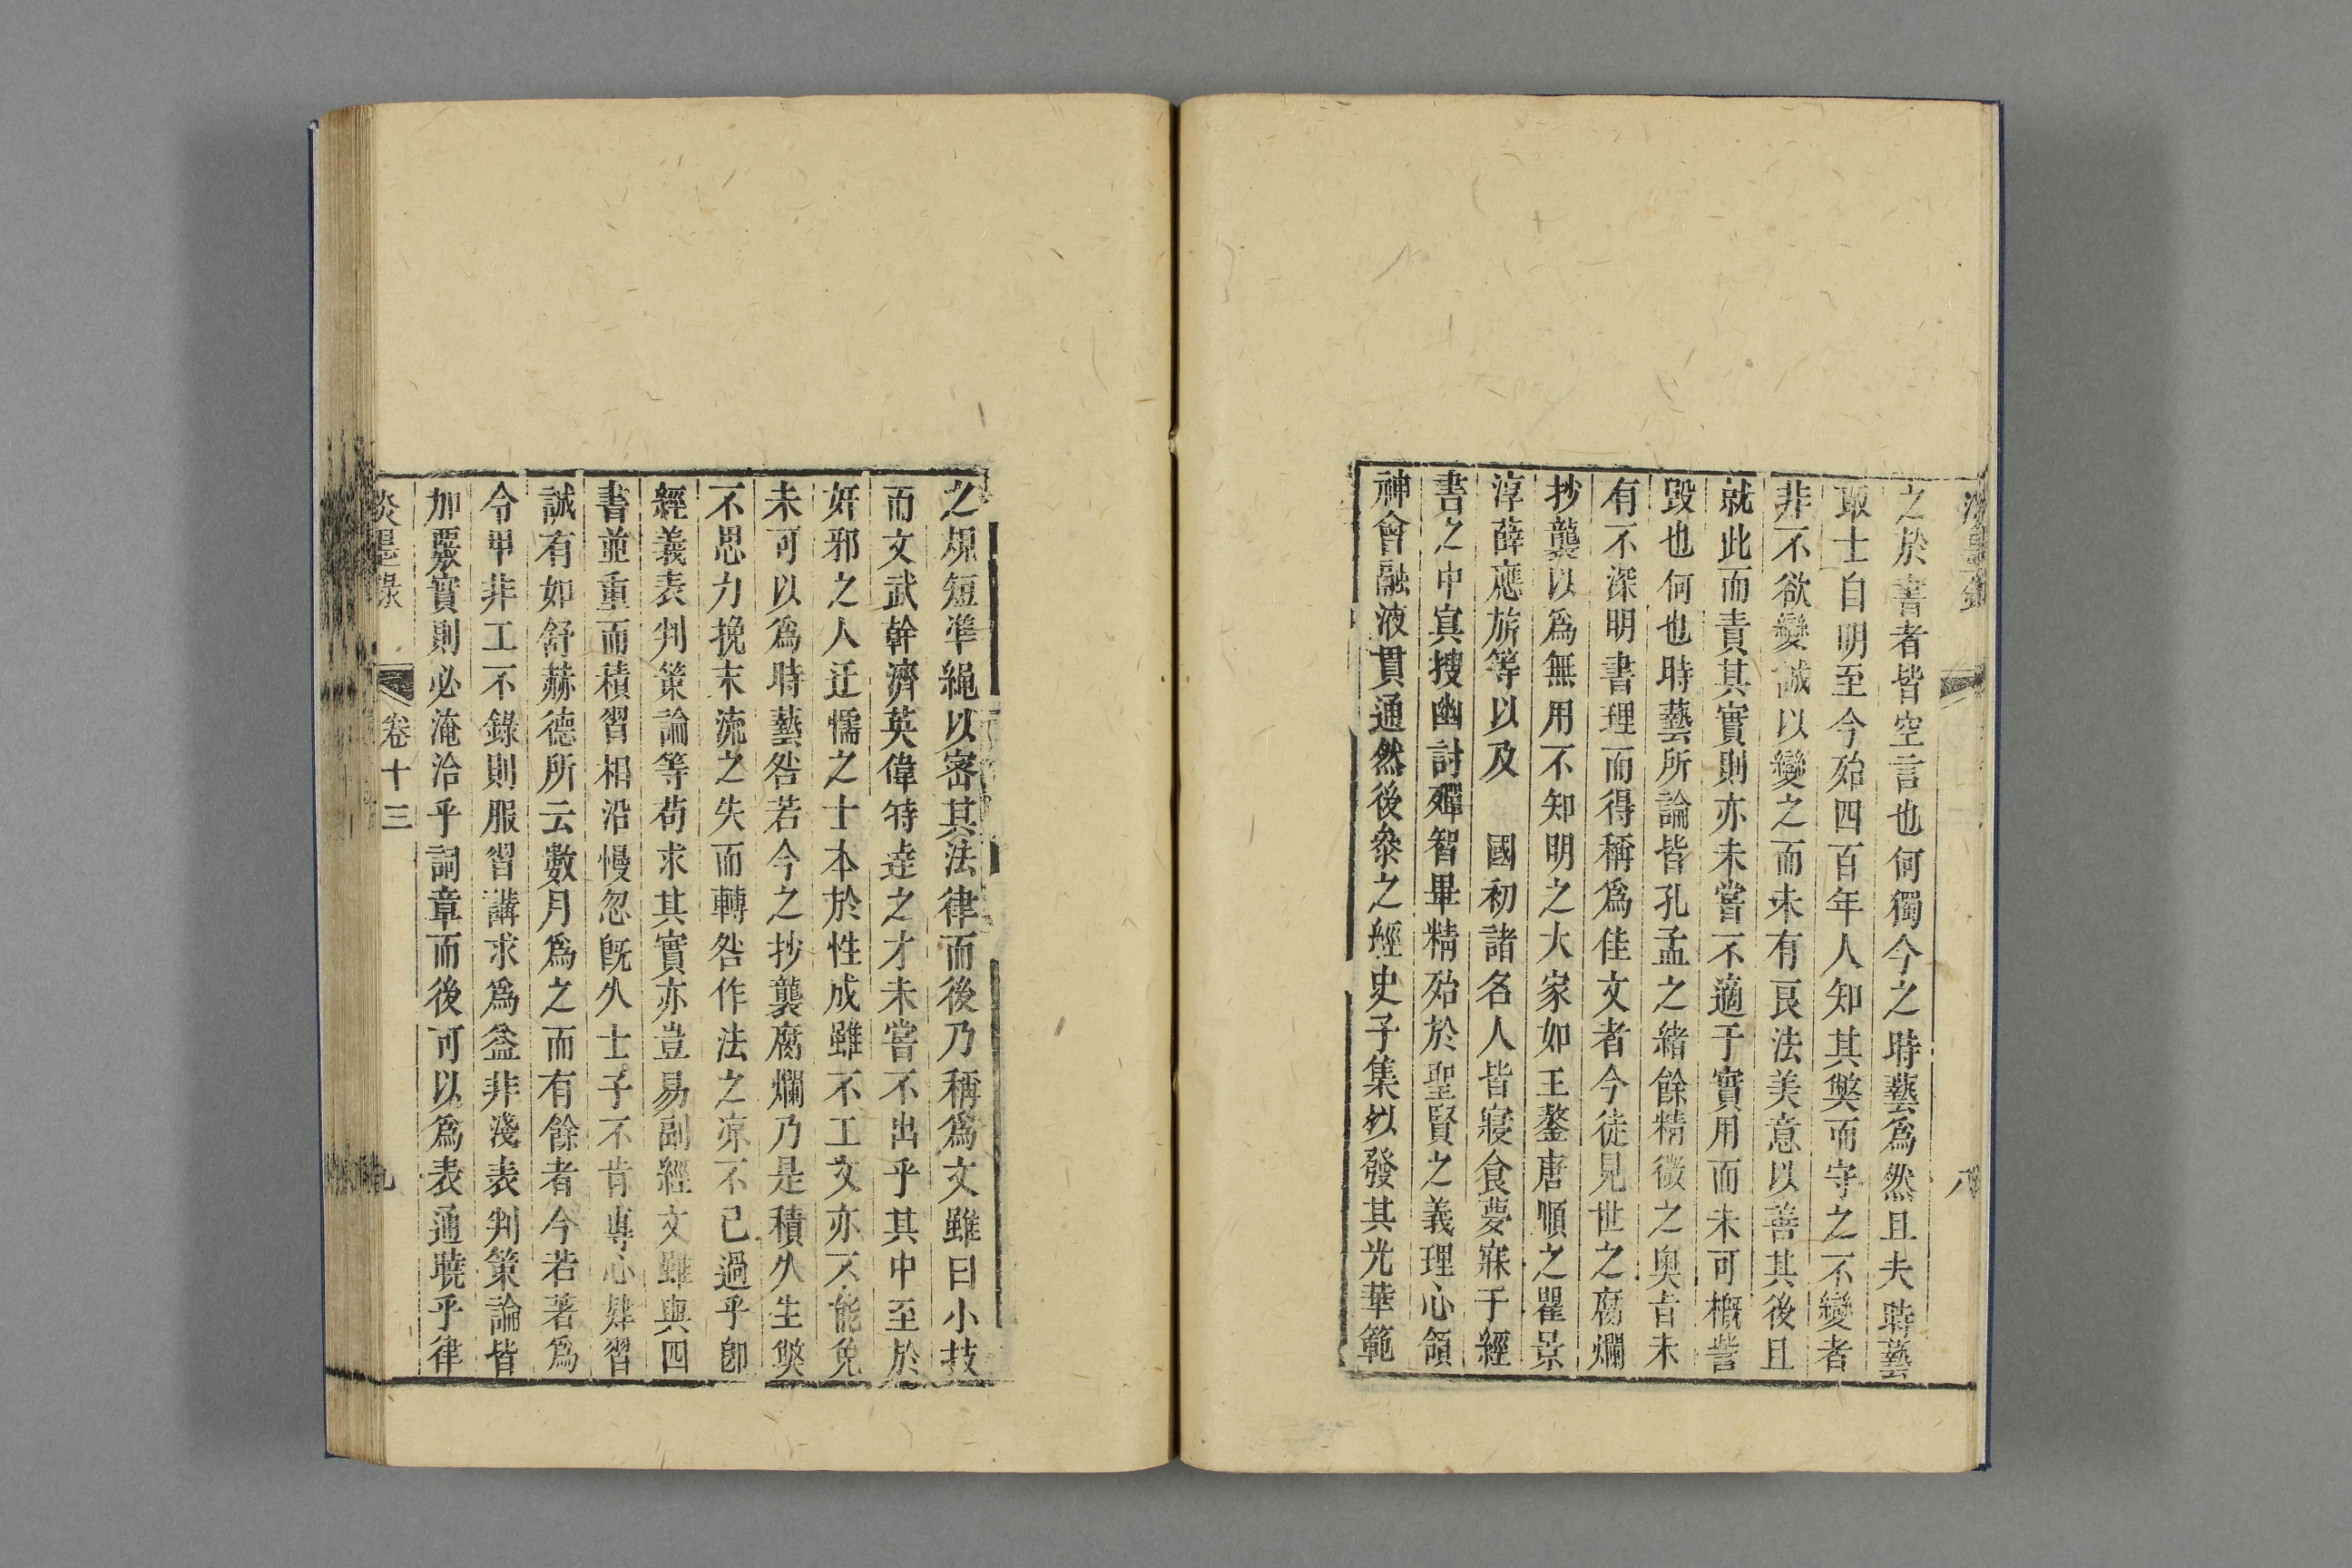 之於書者皆空言也何獨今之時藝爲然且夫時藝
取士自明至今殆四百年人知其獘而守之不變者
非不欲變誠以變之而未有良法美意以善其後且
就此而責其實則亦未嘗不適于實用而未可槪訾
毀也何也時藝所論皆孔孟之緖餘精微之奧旨未
有不深明書理而得稱爲佳文者今徒見世之腐爛
抄襲以爲無用不知明之大家如王鏊唐順之瞿景
淳薛應旂等以及　國初諸名人皆寢食夢寐于經
書之中㝠搜幽討殫智畢精殆於聖賢之義理心領
神會融液貫通然後叅之經史子集以發其光華範
之規矩準繩以密其法律而後乃稱爲文雖曰小技
而文武幹濟英偉特達之才未嘗不出乎其中至於
奸邪之人迂懦之士本於性成雖不工文亦不能免
未可以爲時藝咎若今之抄襲腐爛乃是積久生獘
不思力挽末流之失而轉咎作法之凉不已過乎卽
經義表判策論等苟求其實亦豈易副經文雖與四
書並重而積習相沿慢忽旣久士子不肯專心肄習
誠有如舒赫德所云數月爲之而有餘者今若著爲
令甲非工不錄則服習講求爲益非淺表判策論皆
加覈實則必淹洽乎詞章而後可以爲表通曉乎律
淡墨錄　卷十三　九